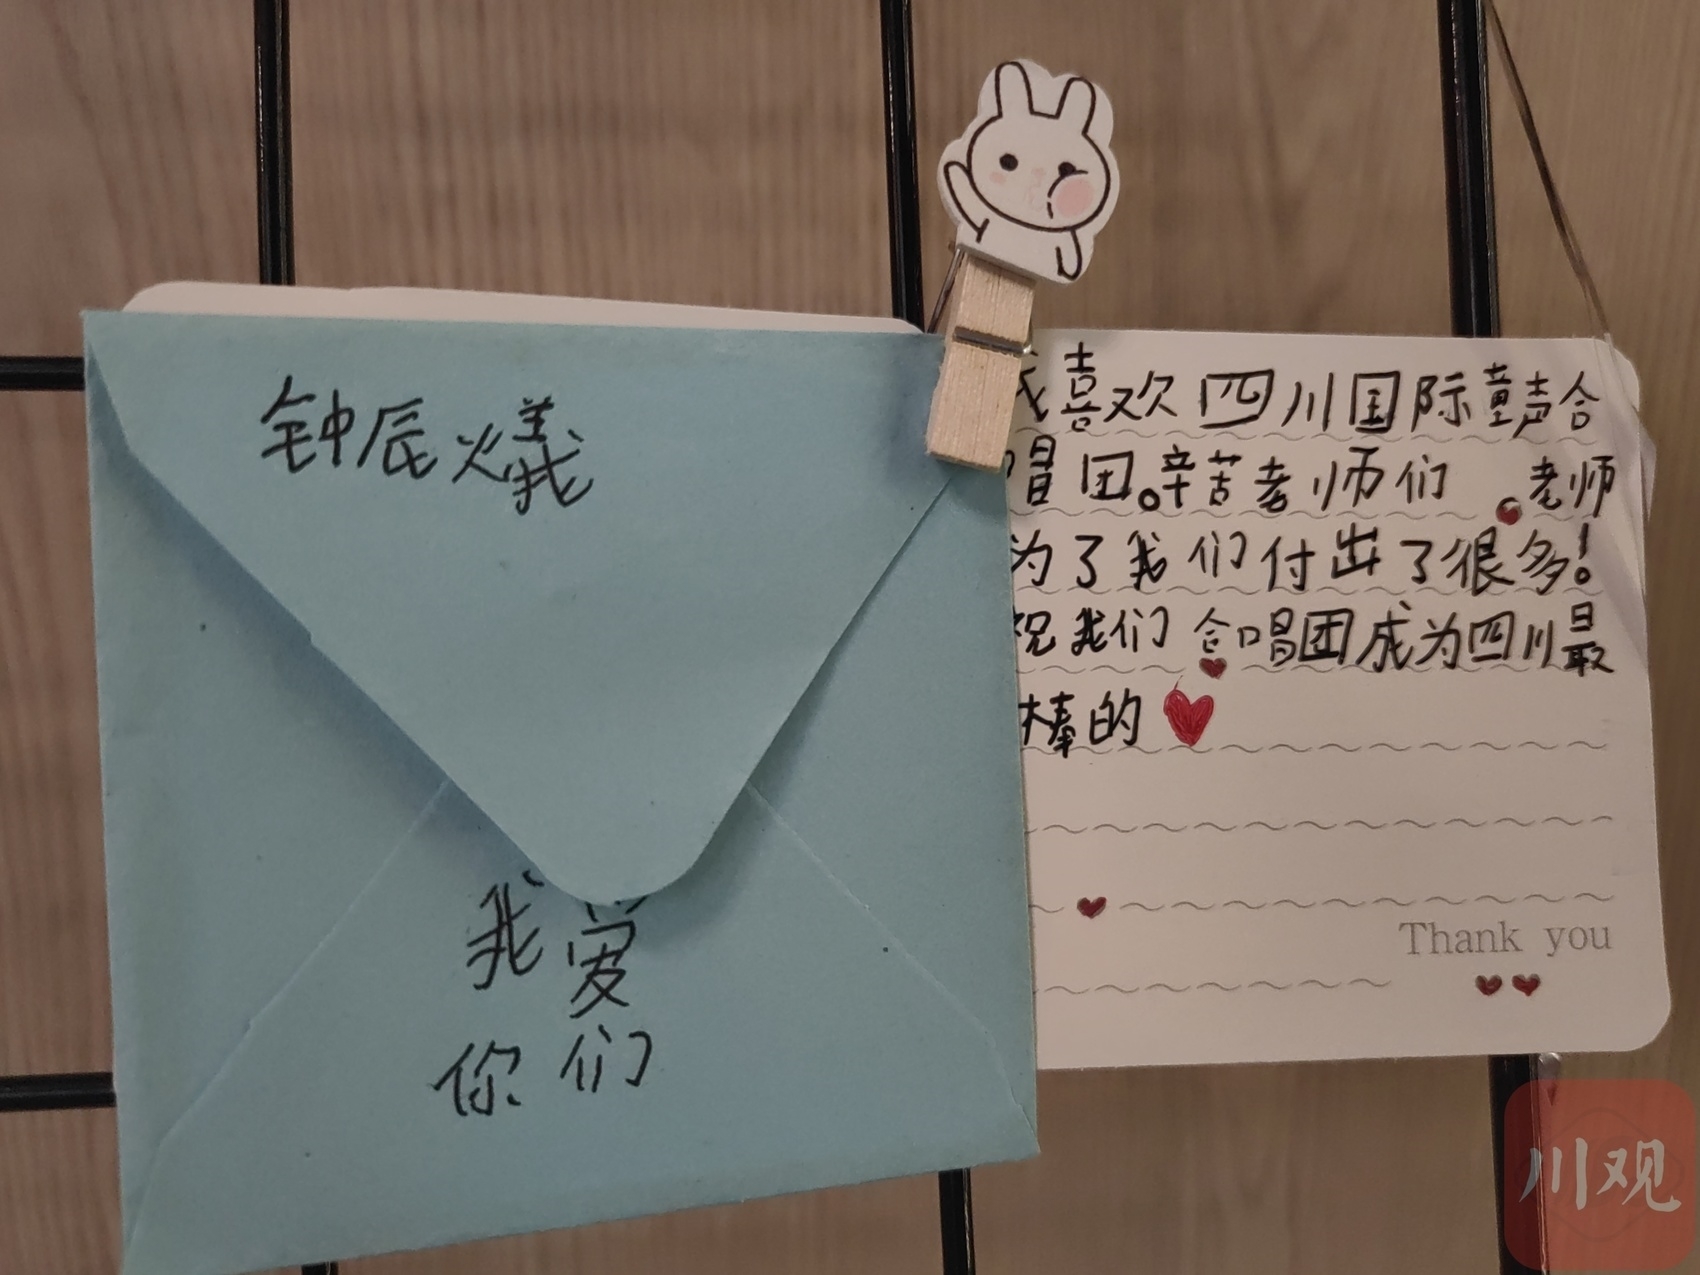 钟辰燨
我爱
你们
我喜欢四川国际童声合
唱团。辛苦老师们 老师
为了我们付出了很多!
祝我们合唱团成为四川最
棒的
Thank you
川观